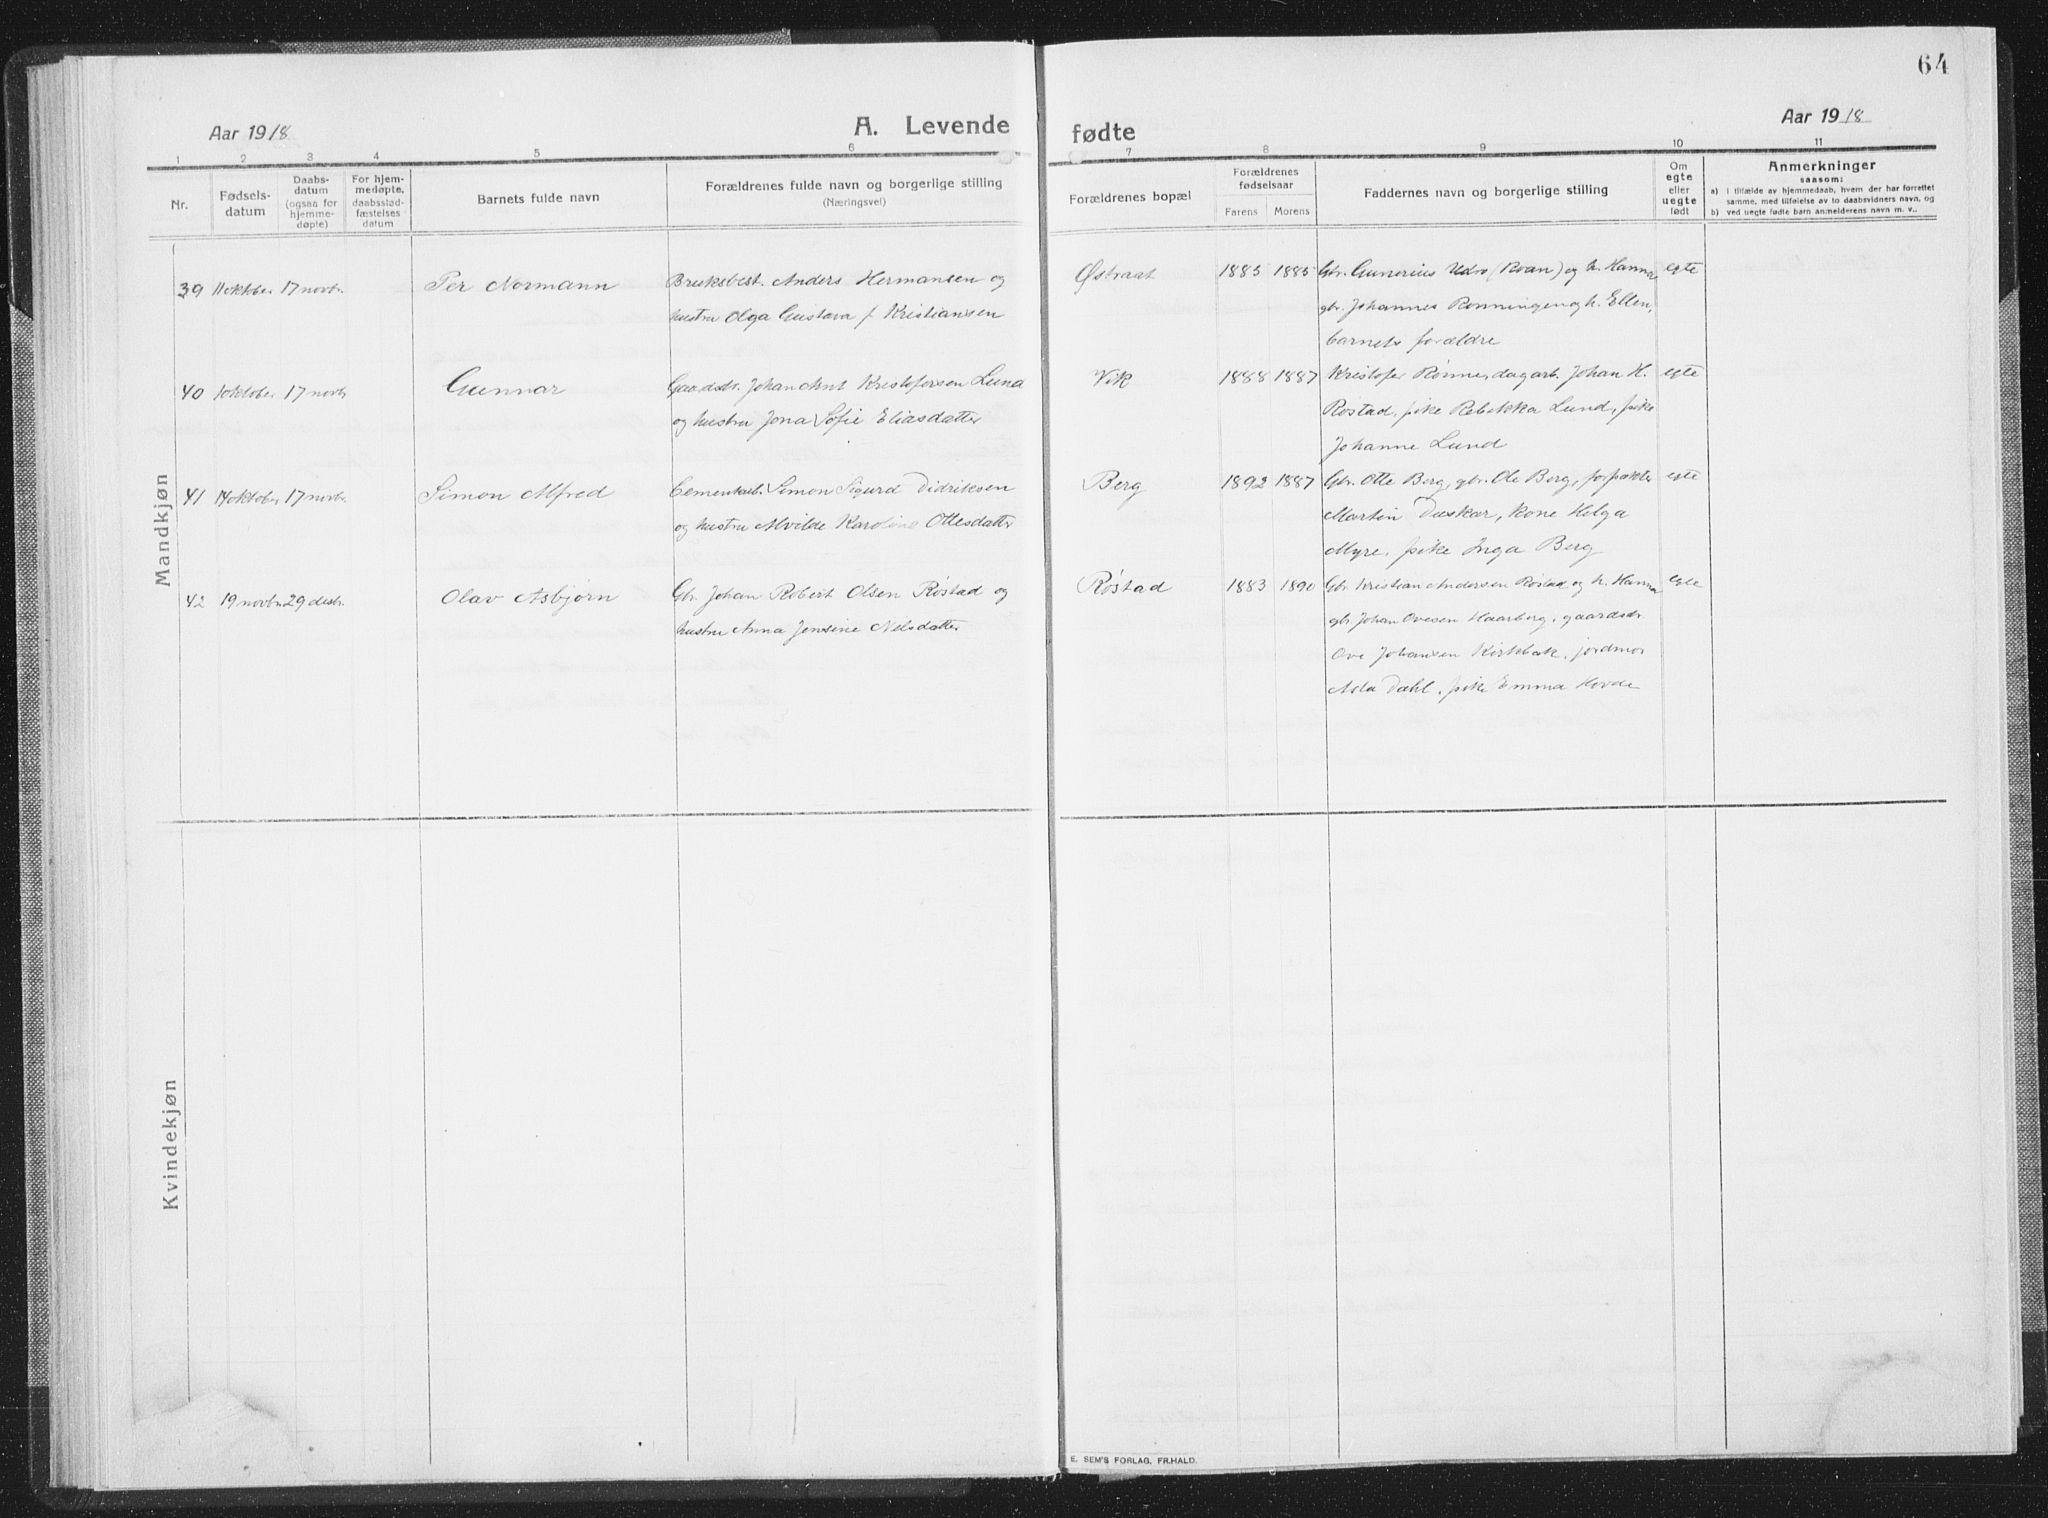 64
Aar 1918
A. Levende
fødte
Aar 1918
1 2 3 4 5 6 7 8 9 10 11
Nr.
Fødsels-
datum
Daabs-
datum
(ogsaa for
hjemme-
døpte)
For hjem-
medøpte,
daabsstad-
fæstelses
datum
Barnets fulde navn
Forældrenes fulde navn og borgerlige stilling
(Næringsvei)
Forældrenes bopæl
Forældrenes
fødselsaar
Farens Morens
Faddernes navn og borgerlige stilling
Om
egte
eller
uegte
født
Anmerkninger
saasom:
a) i tilfælde av hjemmedaab, hvem der har forrettet
samme, med tilføielse av to daabsvidners navn, og
b) ved uegte fødte barn anmelderens navn m. v..
Mandkjøn
39 11 oktober 17 novbr. Per Normann Bruksbest. Anders Hermansen og
hustru Olga Gustava f. Kristiansen
Østraat 1885 1885 Gbr. Gunerius Udvo (Roan) og h. Hanna egte
gbr. Johannes Rønningen og h. Ellen,
barnets forældre
40 1 oktober 17 novbr Gunnar Gaardbr. Johan Arnt Kristofersen Lund
og hustru Jona Sofie Eliasdatter
Vik 1888 1887 Kristofer Rønne, dagarb. Johan H. egte
Røstad, pike Rebekka Lund, pike
Johanne Lund
41 14 oktober 17 novbr. Simon Alfred Cementarb. Simon Sigurd Didriksen
og hustru Alvilde Karoline Ottesdatter
Berg 1892 1887 Gbr. Otte Berg, gbr. Ole Berg, forpakter egte
Martin Duskar, kone Helga
Myre, pike Inga Berg
42 19 novbr. 29 desbr. Olav Asbjørn Gbr. Johan Robert Olsen Røstad og
hustru Anna Jensine Nelsdatter
Røstad 1883 1890 Gbr. Kristian Andersen Røstad og h. Hanna egte
gbr. Johan Ovesen Haarberg, gaardbr.
Ove Johansen Kirkbak, jordmor
Asta Dahl, pike Emma Hovde
Kvindekjøn
E. SEM'S FORLAG, FR.HALD.